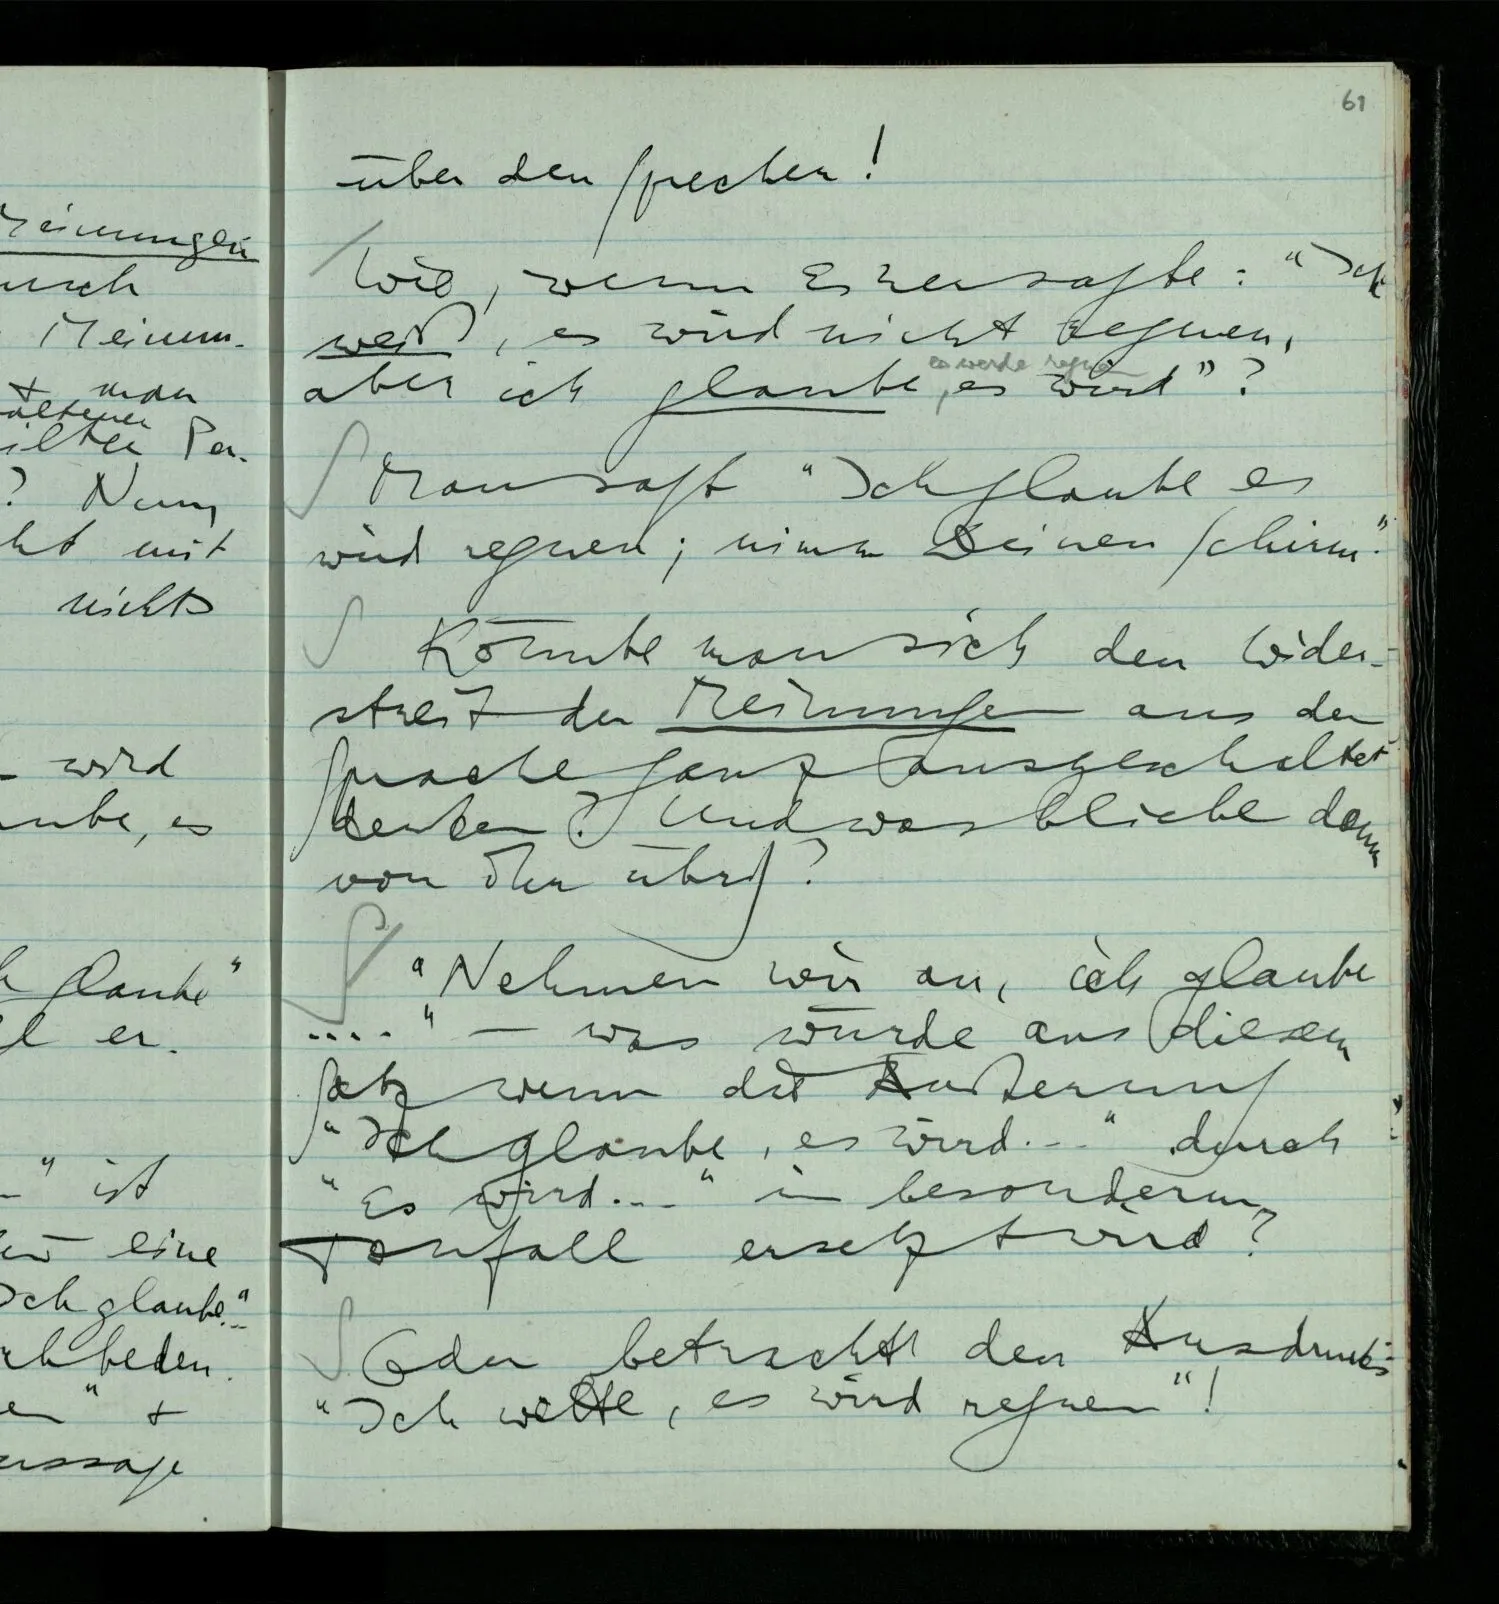 Meinungen
+ man
Per-
? Nun,
mit
nichts
wird
es
glaube"
er.
" ist
eine
Ich glaube..."
" +
61
über den Sprecher!
Wie, wenn Einer sagte: "Ich
weiß, es wird nicht regnen,
es werde regnen
aber ich glaube, es wird"?
Man sagt "Ich glaube es
wird regnen; nimm Deinen Schirm".
Könnte man sich den Wider-
streit der Meinungen aus der
Sprache ganz ausgeschaltet
denken? Und was bliebe dann
von ihr übrig?
"Nehmen wir an, ich glaube
...." – was würde aus diesem
Satz wenn die Äußerung
"Ich glaube, es wird..." durch
"Es wird..." in besonderm
Tonfall ersetzt wird?
Oder betracht den Ausdruck:
"Ich wette, es wird regnen"!